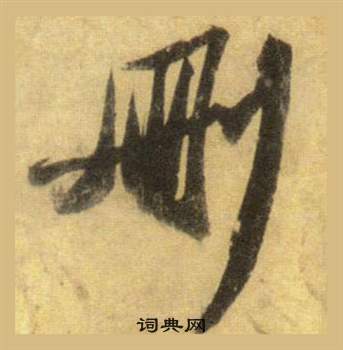 删
词典网